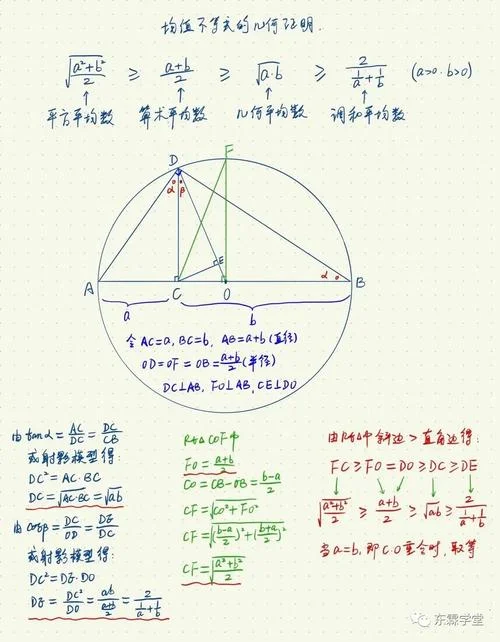 均值不等式的几何证明.
√((a²+b²)/2) ≥ (a+b)/2 ≥ √(a·b) ≥ 2/(1/a+1/b) (a>0·b>0)
平方平均数 算术平均数 几何平均数 调和平均数
F
D
α β
E
α
A C O B
a b
令AC=a, BC=b, AB=a+b(直径)
OD=OF=OB=(a+b)/2(半径)
DC⊥AB, FO⊥AB, CE⊥DO
由tanα=AC/DC=DC/CB
或射影模型得:
DC²=AC·BC
DC=√(AC·BC)=√ab
由cosβ=DC/OD=DE/DC
或射影模型得:
DC²=DE·DO
DE=DC²/DO=ab/((a+b)/2)=2/(1/a+1/b)
Rt△COF中
FO=(a+b)/2
CO=CB-OB=(b-a)/2
CF=√(CO²+FO²)
CF=√(((b-a)/2)²+((b+a)/2)²)
CF=√((a²+b²)/2)
由Rt△中斜边>直角边得:
FC≥FO=DO≥DC≥DE
√((a²+b²)/2) ≥ (a+b)/2 ≥ √ab ≥ 2/(1/a+1/b)
当a=b,即C·O重合时,取等
东霖学堂